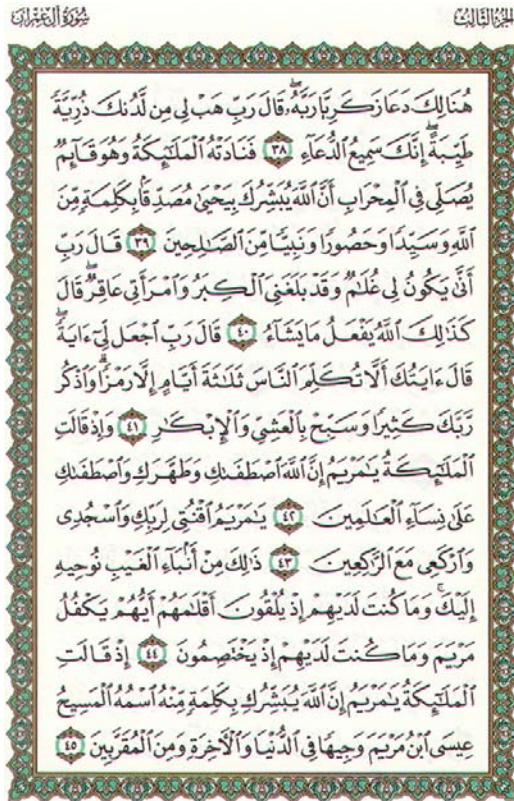 الجزء الثالث
سورة آل عمران
هُنَالِكَ دَعَا زَكَرِيَّا رَبَّهُۥ ۖ قَالَ رَبِّ هَبْ لِى مِن لَّدُنكَ ذُرِّيَّةً
طَيِّبَةً ۖ إِنَّكَ سَمِيعُ ٱلدُّعَآءِ ٣٨ فَنَادَتْهُ ٱلْمَلَٰٓئِكَةُ وَهُوَ قَآئِمٌ
يُصَلِّى فِى ٱلْمِحْرَابِ أَنَّ ٱللَّهَ يُبَشِّرُكَ بِيَحْيَىٰ مُصَدِّقًۢا بِكَلِمَةٍ مِّنَ
ٱللَّهِ وَسَيِّدًا وَحَصُورًا وَنَبِيًّا مِّنَ ٱلصَّٰلِحِينَ ٣٩ قَالَ رَبِّ
أَنَّىٰ يَكُونُ لِى غُلَٰمٌ وَقَدْ بَلَغَنِىَ ٱلْكِبَرُ وَٱمْرَأَتِى عَاقِرٌ ۖ قَالَ
كَذَٰلِكَ ٱللَّهُ يَفْعَلُ مَا يَشَآءُ ٤٠ قَالَ رَبِّ ٱجْعَل لِّىٓ ءَايَةً ۖ
قَالَ ءَايَتُكَ أَلَّا تُكَلِّمَ ٱلنَّاسَ ثَلَٰثَةَ أَيَّامٍ إِلَّا رَمْزًا ۗ وَٱذْكُر
رَّبَّكَ كَثِيرًا وَسَبِّحْ بِٱلْعَشِىِّ وَٱلْإِبْكَٰرِ ٤١ وَإِذْ قَالَتِ
ٱلْمَلَٰٓئِكَةُ يَٰمَرْيَمُ إِنَّ ٱللَّهَ ٱصْطَفَىٰكِ وَطَهَّرَكِ وَٱصْطَفَىٰكِ
عَلَىٰ نِسَآءِ ٱلْعَٰلَمِينَ ٤٢ يَٰمَرْيَمُ ٱقْنُتِى لِرَبِّكِ وَٱسْجُدِى
وَٱرْكَعِى مَعَ ٱلرَّٰكِعِينَ ٤٣ ذَٰلِكَ مِنْ أَنۢبَآءِ ٱلْغَيْبِ نُوحِيهِ
إِلَيْكَ ۚ وَمَا كُنتَ لَدَيْهِمْ إِذْ يُلْقُونَ أَقْلَٰمَهُمْ أَيُّهُمْ يَكْفُلُ
مَرْيَمَ وَمَا كُنتَ لَدَيْهِمْ إِذْ يَخْتَصِمُونَ ٤٤ إِذْ قَالَتِ
ٱلْمَلَٰٓئِكَةُ يَٰمَرْيَمُ إِنَّ ٱللَّهَ يُبَشِّرُكِ بِكَلِمَةٍ مِّنْهُ ٱسْمُهُ ٱلْمَسِيحُ
عِيسَى ٱبْنُ مَرْيَمَ وَجِيهًا فِى ٱلدُّنْيَا وَٱلْءَاخِرَةِ وَمِنَ ٱلْمُقَرَّبِينَ ٤٥